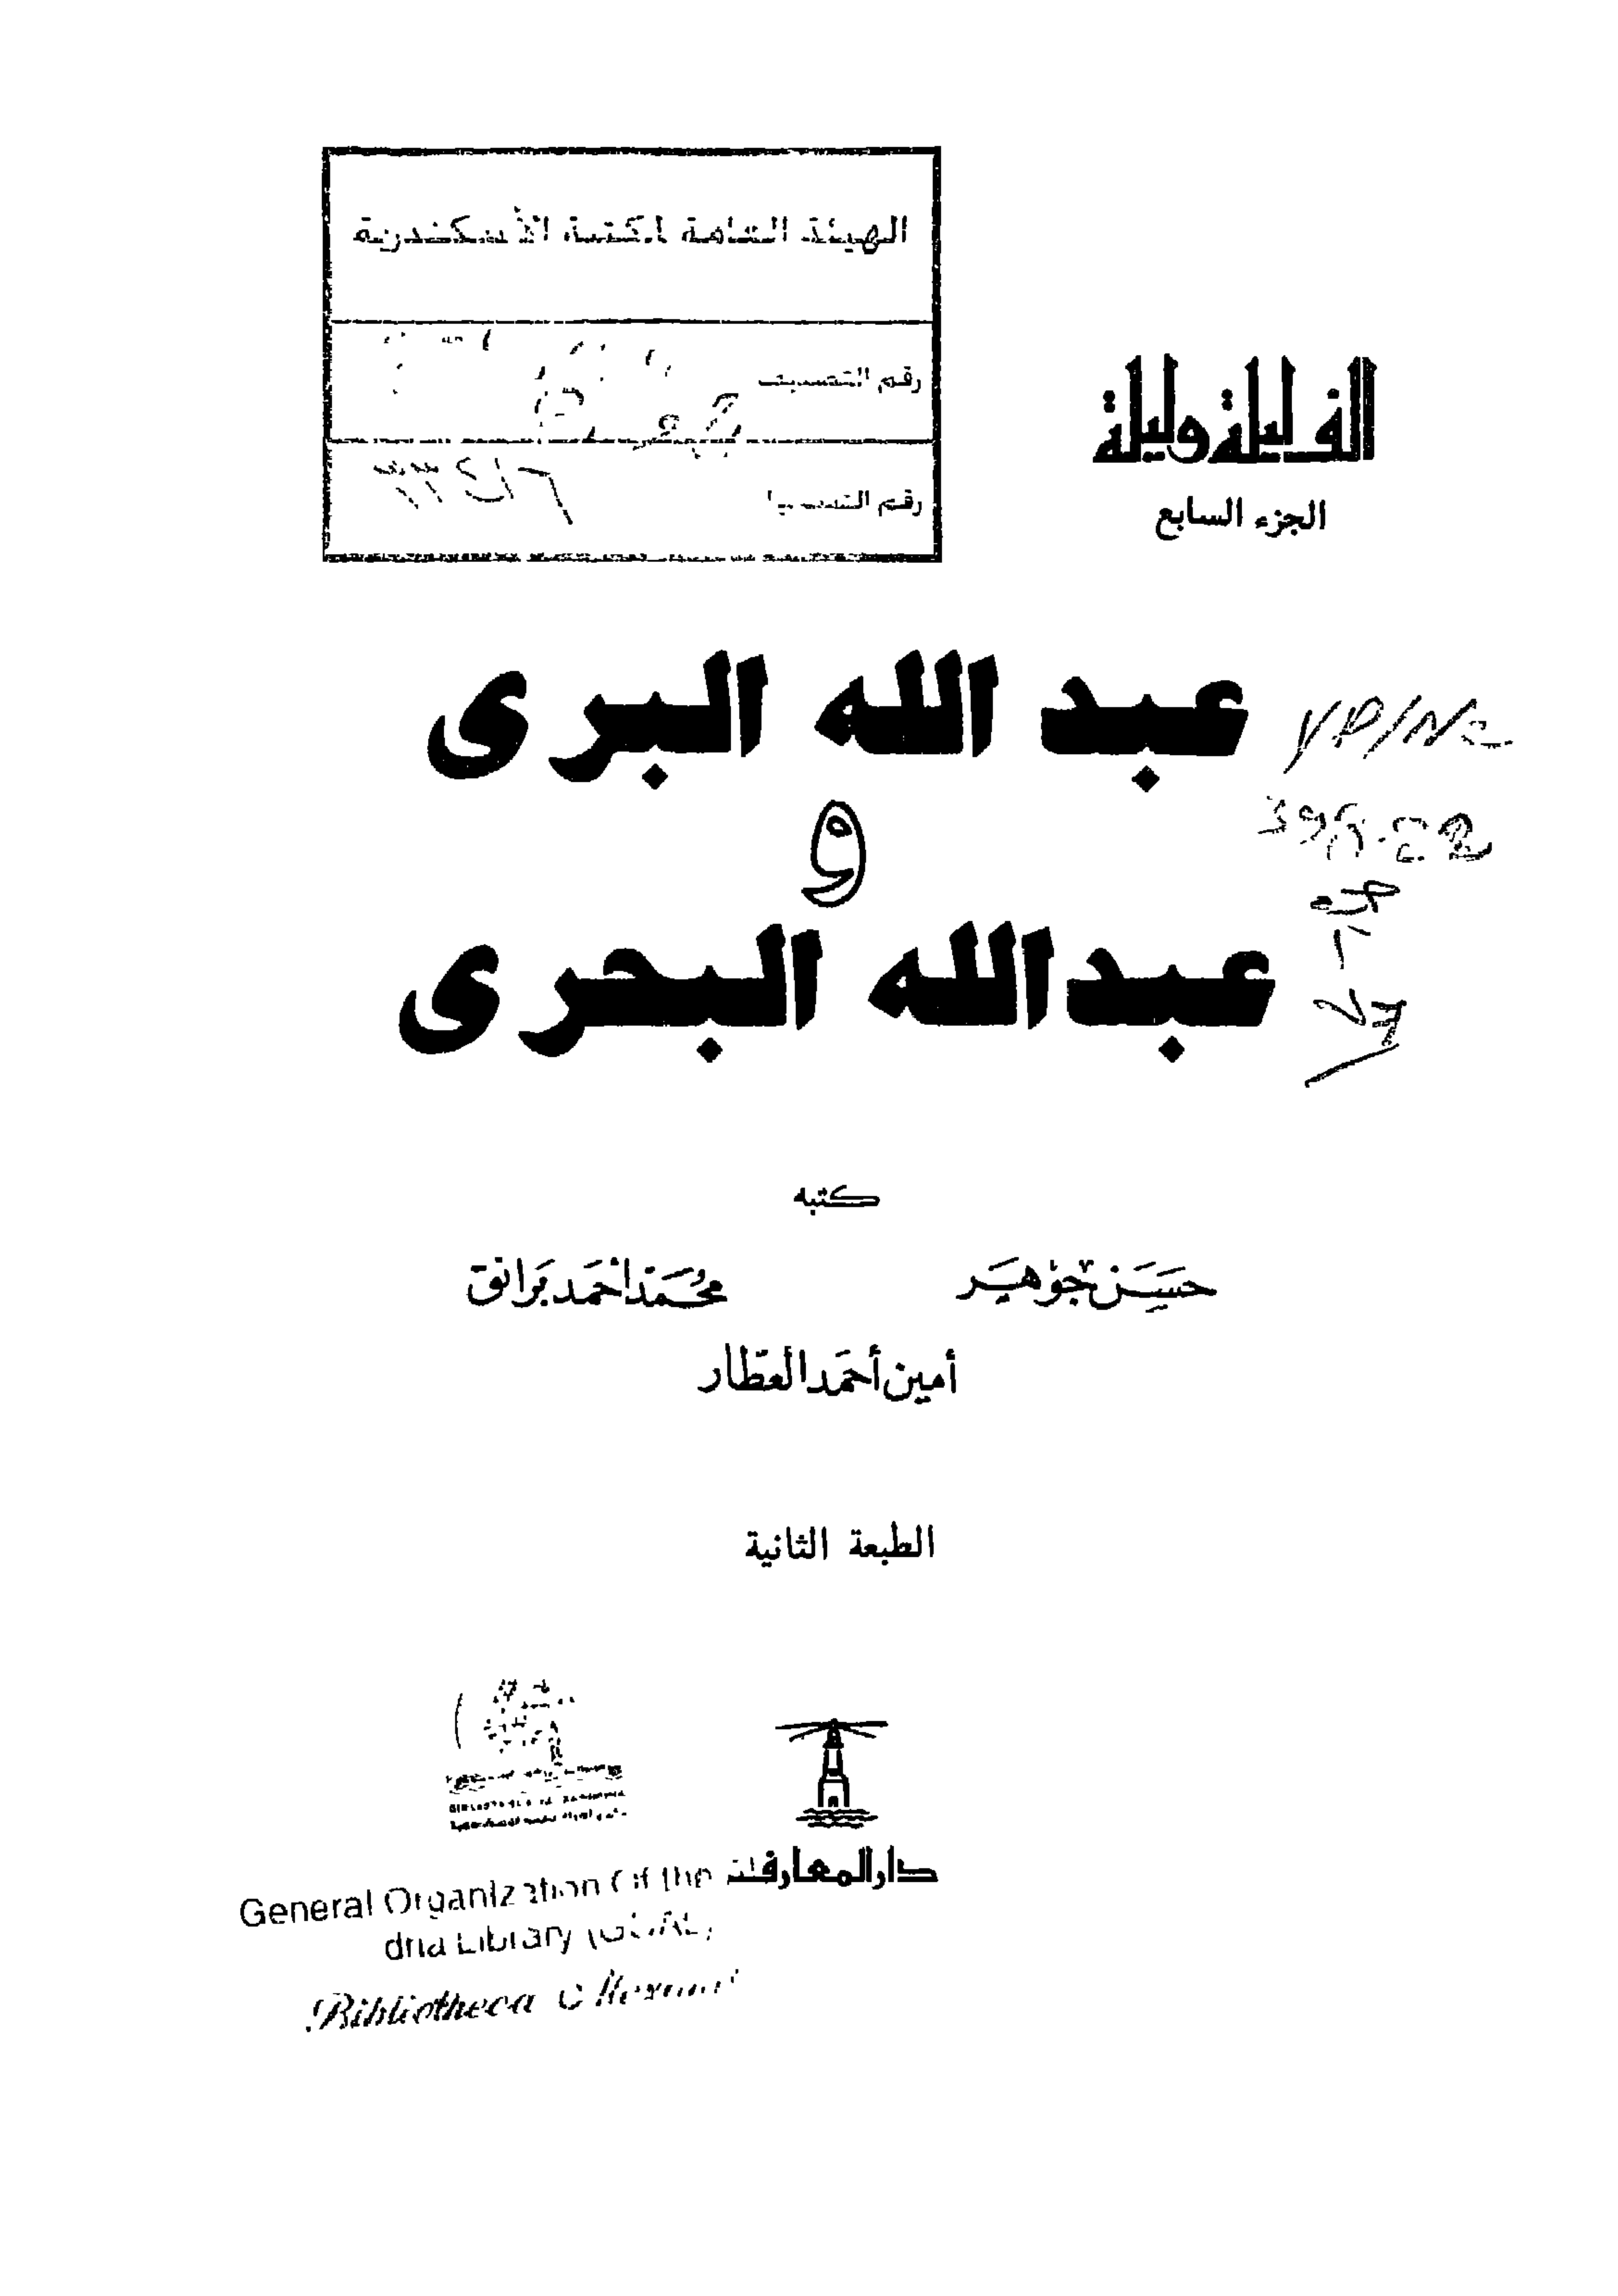 الهيئة العامة لمكتبة الأسكندرية
رقم التصنيف
رقم التسجيل
ألف ليلة وليلة
الجزء السابع
عبد الله البرى
و
عبدالله البحرى
كتبه
حَسَن جَوْهَر محُمَّد أحْمَد بَرانق
أمين أحْمَد العَطّار
الطبعة الثانية
دار المعارف
General Organization Of the
dria Library (GOAL)
Bibliotheca Alexandrina